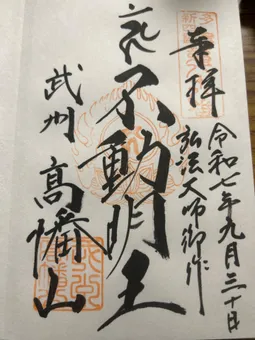 奉拝
令和七年九月三十日
弘法大師御作
不動明王
武州 高幡山